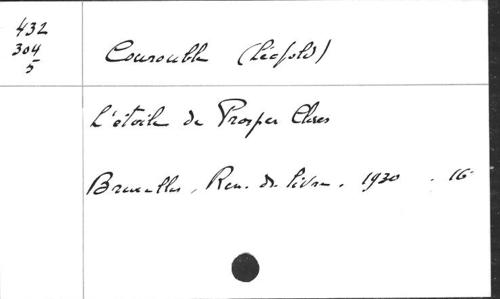 432
304
5
Courouble (Léopold)
L'étoile de Prosper Claes
Bruxelles, Ren. du livre. 1930 . 16°